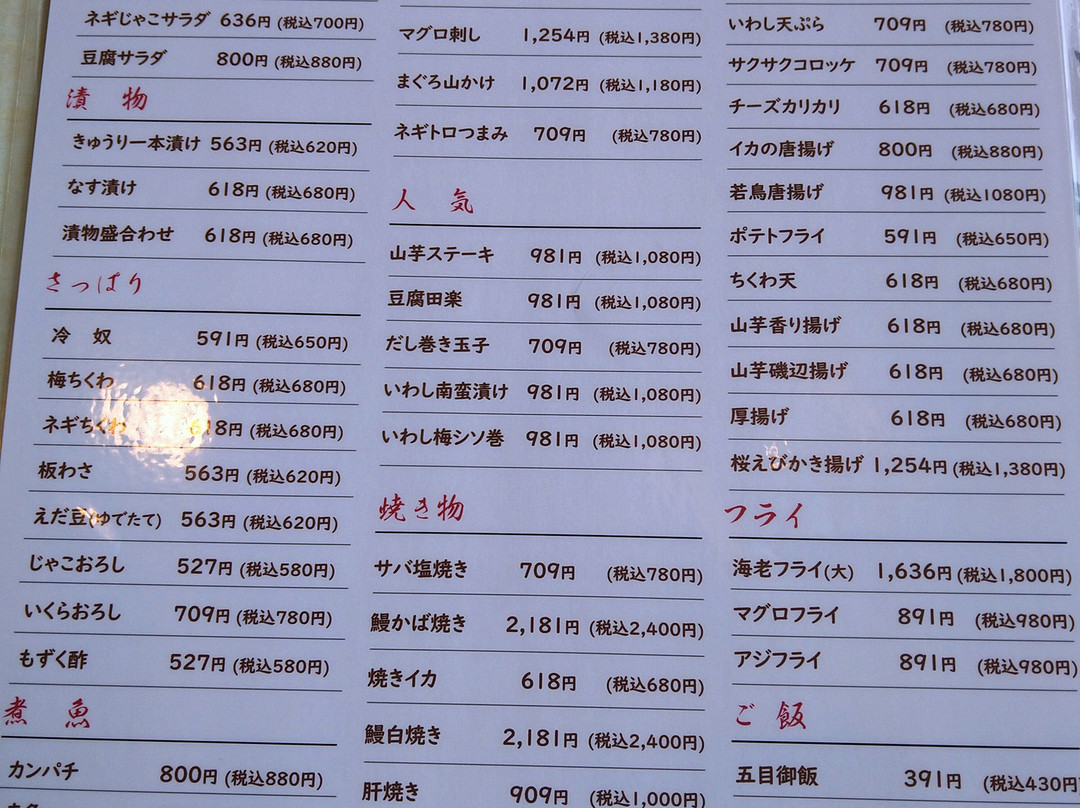 ネギじゃこサラダ 636円 (税込700円)
豆腐サラダ 800円 (税込880円)
漬 物
きゅうり一本漬け 563円 (税込620円)
なす漬け 618円 (税込680円)
漬物盛合わせ 618円 (税込680円)
さっぱり
冷 奴 591円 (税込650円)
梅ちくわ 618円 (税込680円)
ネギちくわ 618円 (税込680円)
板わさ 563円 (税込620円)
えだ豆(ゆでたて) 563円 (税込620円)
じゃこおろし 527円 (税込580円)
いくらおろし 709円 (税込780円)
もずく酢 527円 (税込580円)
煮 魚
カンパチ 800円 (税込880円)
マグロ刺し 1,254円 (税込1,380円)
まぐろ山かけ 1,072円 (税込1,180円)
ネギトロつまみ 709円 (税込780円)
人 気
山芋ステーキ 981円 (税込1,080円)
豆腐田楽 981円 (税込1,080円)
だし巻き玉子 709円 (税込780円)
いわし南蛮漬け 981円 (税込1,080円)
いわし梅シソ巻 981円 (税込1,080円)
焼き物
サバ塩焼き 709円 (税込780円)
鰻かば焼き 2,181円 (税込2,400円)
焼きイカ 618円 (税込680円)
鰻白焼き 2,181円 (税込2,400円)
肝焼き 909円 (税込1,000円)
いわし天ぷら 709円 (税込780円)
サクサクコロッケ 709円 (税込780円)
チーズカリカリ 618円 (税込680円)
イカの唐揚げ 800円 (税込880円)
若鳥唐揚げ 981円 (税込1080円)
ポテトフライ 591円 (税込650円)
ちくわ天 618円 (税込680円)
山芋香り揚げ 618円 (税込680円)
山芋磯辺揚げ 618円 (税込680円)
厚揚げ 618円 (税込680円)
桜えびかき揚げ 1,254円 (税込1,380円)
フライ
海老フライ(大) 1,636円 (税込1,800円)
マグロフライ 891円 (税込980円)
アジフライ 891円 (税込980円)
ご 飯
五目御飯 391円 (税込430円